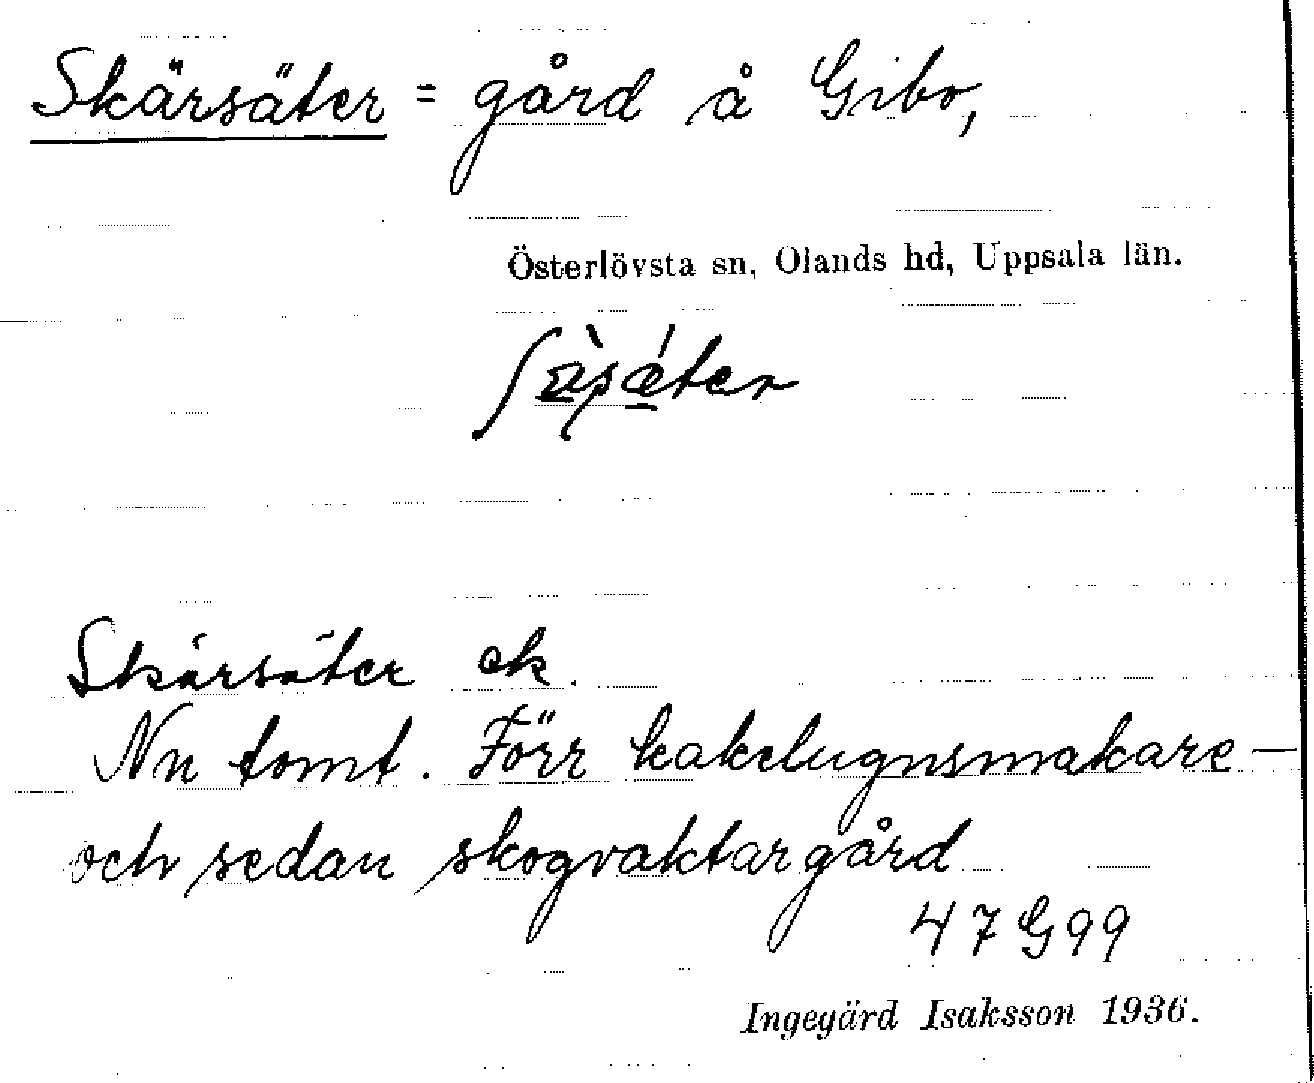 Skärsäter = gård å Gibo,
Österlövsta sn, Olands hd, Uppsala län.
Skärsäter ek.
Nu tomt. Förr kakelugnsmakare-
och sedan skogvaktargård
47 G 99
Ingegärd Isaksson 1936.